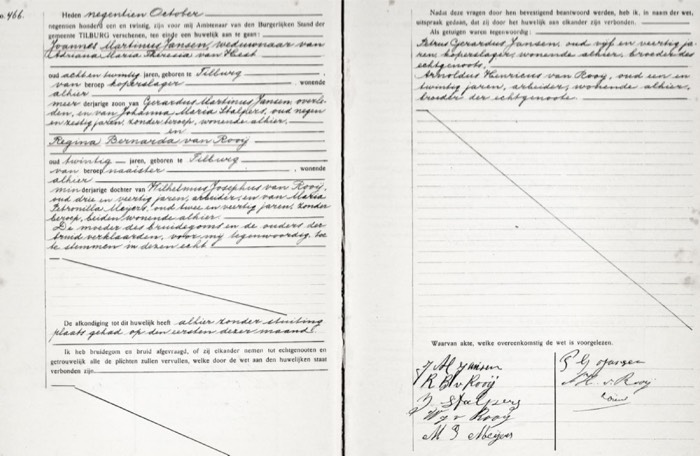 No. 466.
Heden negentien October
negentien honderd een en twintig, zijn voor mij Ambtenaar van den Burgerlijken Stand der
gemeente TILBURG verschenen, ten einde een huwelijk aan te gaan:
Joannes Martinus Jansen, weduwnaar van
Adriana Maria Theresia van Hest
oud achten twintig jaren, geboren te Tilburg
van beroep koperslager, wonende
alhier
meerderjarige zoon van Gerardus Martinus Jansen, overle-
den, en van Johanna Maria Stalpers, oud negen
en zestig jaren, zonder beroep, wonende alhier,
en
Regina Bernarda van Rooij
oud twintig jaren, geboren te Tilburg
van beroep naaister, wonende
alhier
minderjarige dochter van Wilhelmus Josephus van Rooij,
oud drie en veertig jaren, arbeider, en van Maria
Petronilla Meijers, oud twee en veertig jaren, zonder
beroep, beiden wonende alhier.
De moeder des bruidegoms en de ouders der
bruid verklaarden, voor mij tegenwoordig, toe
te stemmen in dezen echt.
De afkondiging tot dit huwelijk heeft alhier zonder stuiting
plaats gehad op den eersten dezer maand.
Ik heb bruidegom en bruid afgevraagd, of zij elkander nemen tot echtgenooten en
getrouwelijk alle de plichten zullen vervullen, welke door de wet aan den huwelijken staat
verbonden zijn.
Nadat deze vragen door hen bevestigend beantwoord werden, heb ik, in naam der wet,
uitspraak gedaan, dat zij door het huwelijk aan elkander zijn verbonden.
Als getuigen waren tegenwoordig:
Petrus Gerardus Jansen, oud vijf en veertig ja-
ren, koperslager, wonende alhier, broeder des
echtgenoots,
Arnoldus Henricus van Rooij, oud een en
twintig jaren, arbeider, wonende alhier,
broeder der echtgenoote.
Waarvan akte, welke overeenkomstig de wet is voorgelezen.
J M Jansen
R B v Rooij
J Stalpers
W J v Rooij
M P Meijers
P G Jansen
A H v Rooij